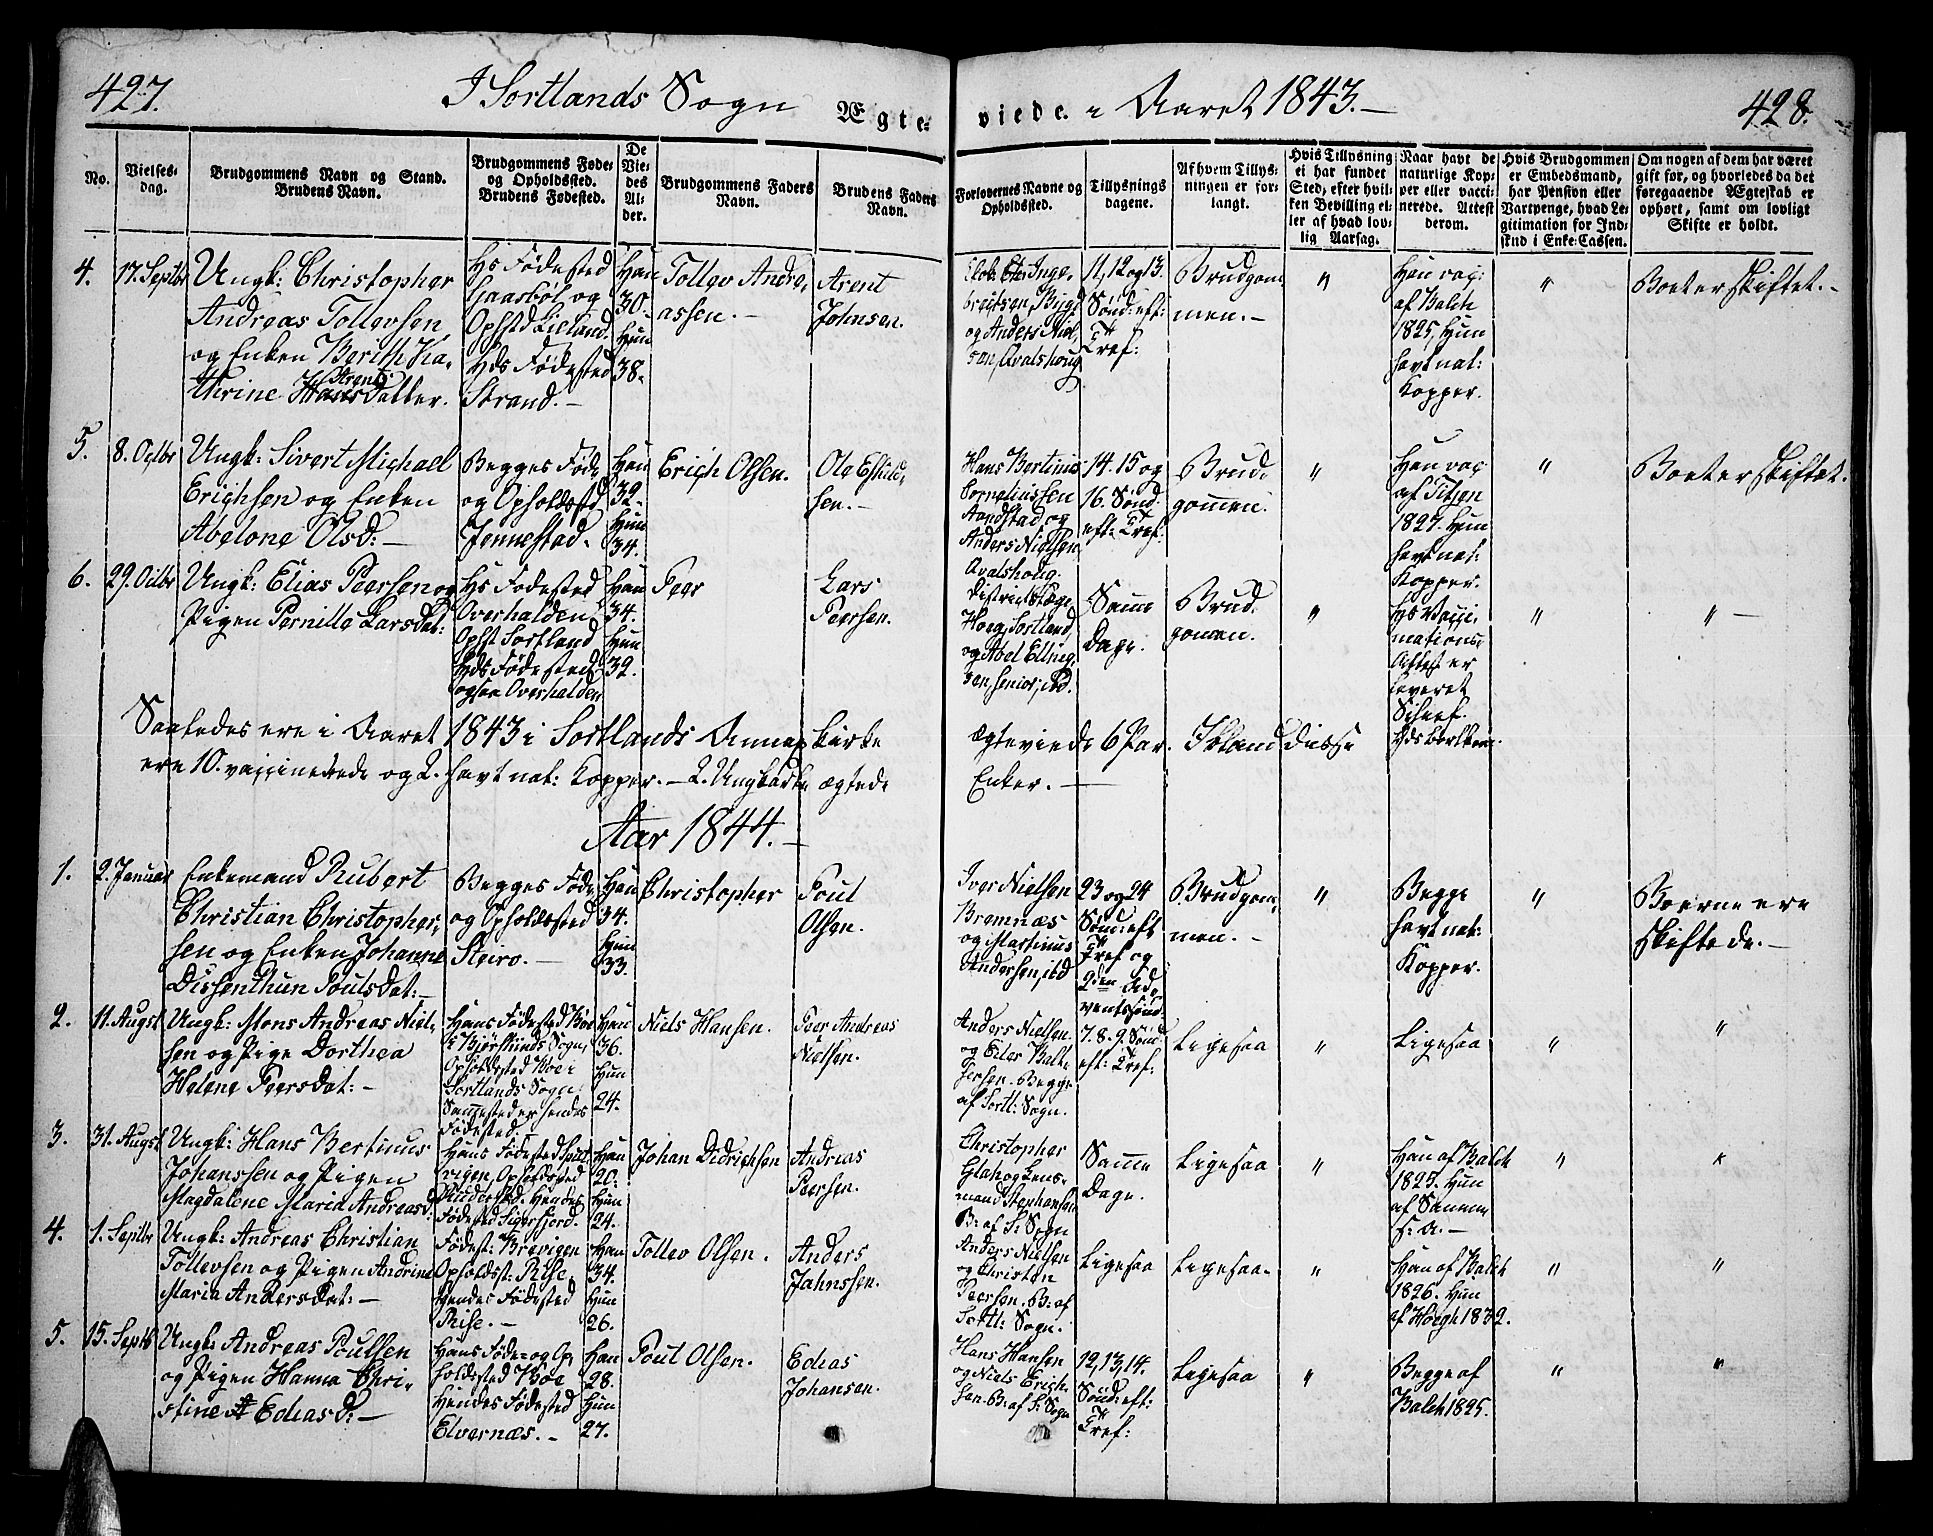 427.
I Sortlands Sogn
Ægte-
viede. i Aaret 1843.—
428.
No.
Vielses-
dag.
Brudgommens Navn og Stand.
Brudens Navn.
Brudgommens Føde-
og Opholdssted.
Brudens Fødested.
De
Vie-
des
Al-
der.
Brudgommens Faders
Navn.
Brudens Faders
Navn.
Forlovernes Navne og
Opholdssted.
Tillysnings
dagene.
Af hvem Tillys-
ningen er for-
langt.
Hvis Tillysning
ei har fundet
Sted, efter hvil-
ken Bevilling el-
ler af hvad lov-
lig Aarsag.
Naar havt de
naturlige Kop-
per eller vacci-
nerede. Attest
derom.
Hvis Brudgommen
er Embedsmand,
har Pension eller
Vartpenge, hvad Le-
gitimation for Ind-
skud i Enke-Cassen.
Om nogen af dem har været
gift før, og hvorledes da det
foregaaende Ægteskab er
ophørt, samt om lovligt
Skifte er holdt.
4.
17. Septbr
Ungk: Christopher
Andreas Tollevsen
og Enken Berith Ka-
thrine Hans Datter.
Arents
Hs Fødested
Gaasbøl og
Ophstd Lieland
Hds Fødested
Strand.—
Han
30.
Hun
38.
Tollev Andre-
assen.—
Arent
Johnsen.
Inge-
bregtsen, Bygd
og Anders Niel-
sen, Avalshoug
11, 12 og 13.
Sønd: eft:
Tref:
Brudgom-
men.—
"
Han vac:
af Balch
1825, Hun
havt nat:
Kopper.
"
Boet er skiftet.—
5.
8. Octbr
Ungk: Sivert Michael
Erichsen og Enken
Abelone Olsd:—
Begges Føde-
og Opholdsstd
Jennestad.
Han
32.
Hun
34.
Erich Olsen.
Ole Eskild-
sen.—
Hans Bertinus
Corneliussen
Aandstad og
Anders Nielsen,
Avalshoug.
14. 15 og
16. Sønd:
eft: Tref:
Brud-
gommen.
"
Han vac:
af Titjen
1827. Hun
havt nat:
Kopper.
"
Boet er skiftet.
6.
29. Octbr
Ungk: Elias Peersen og
Pigen Pernille Larsdat:
Hs Fødested
Overhalden,
Ophst Sortland
Hds Fødested
ogsaa Overhalden
Han
34.
Hun
32.
Peer
Lars
Peersen.
Districtslæge
Hoeg, Sortland,
og Abel Elling-
sen, senior, ibd.
Samme
Dage.
Brud-
gommen.
"
Hs Vacci-
nations-
Attest er
leveret
"
"—
Saaledes ere i Aaret 1843 i Sortlands Annex kirke ægteviede 6 Par. Iblandt disse
ere 10. vaccinerede og 2. havt nat: Kopper.— 2. Ungkarle ægtede Enker.—
Aar 1844.—
1.
2. Januar
Enkemand Rubert
Christian Christopher-
sen og Enken Johanne
Dissenthun Poulsdat:—
Begges Føde-
og Opholdssted
Steiro.—
Han
34.
Hun
33.
Christopher
Poul
Olsen.
Iver Nielsen
Bremnæs
og Martinus
Andersen, ibd
23 og 24
Sønd: eft
Tref og
2den Ad-
ventssønd
Brudgom-
men.—
"
Begge
havt nat:
Kopper.
"
Boerne ere
skiftede.—
2.
11. Augst
Ungk: Mons Andreas Niel-
sen og Pige Dorthea
Helene Peersdat:—
Hans Fødested Bøe
i Bjørskinds Sogn,
Opholdssted Boe i
Sortlands Sogn.
Sammested er hendes
Fødested.—
Han
36.
Hun
24.
Niels Hansen.
Peer Andreas
Nielsen.
Anders Nielsen
og Eiler Balt-
zersen. Begge
af Sortl: Sogn.
7. 8. 9. Sønd:
eft: Tref:
Ligesaa
"
Ligesaa
"
"
3.
31. Augst
Ungk: Hans Bertinus
Johanssen og Pigen
Magdalene Maria Andreasd:
Hans Fødested
Opholdssted
Hendes
Fødested Sigerfjord.
Han
20.
Hun
24.
Johan Didrichsen
Andreas
Peersen.
Christopher
Glahn og Lens-
mand Stephansen
B: af S: Sogn
Samme
Dage.
Ligesaa
"
Han af Balch
1825. Hun
af Samme
s: A.—
"
"
4.
1. Septbr
Ungk: Andreas Christian
Tollevsen og Pigen Andrine
Maria Anders Dat:—
Fødest: Brevigen
Opholdsst: Rise,
Hendes Fødested
Rise.—
Han
34.
Hun
26.
Tollev Olsen.
Anders
Jahnssen.
Anders Nielsen
og Christen
Peersen. B: af
Sortl: Sogn.
Ligesaa
Ligesaa.
"
Han af Balch
1826. Hun
af Hoegh 1832.
"
"
5.
15. Septb
Ungk: Andreas Poulsen
og Pigen Hanna Chri-
stine Ediasd:—
Hans Føde- og Op-
holdssted Boe
Hendes Fødested
Elvernæs.—
Han
28.
Hun
27.
Poul Olsen.
Edias
Johansen.
Hans Hansen
og Niels Erich-
sen. B: af S: Sogn
12, 13, 14.
Sønd: eft:
Tref:
Ligesaa
"
Begge af
Balch 1825.
"
"